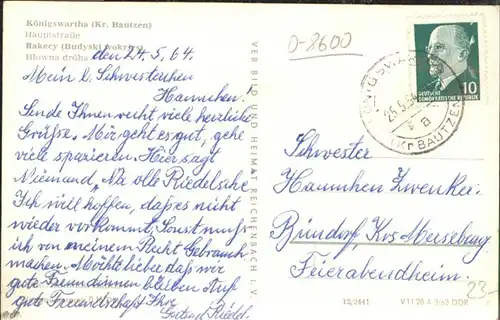 Königswartha (Kr. Bautzen)
Hauptstraße
Rakecy (Budyski wokrjes)
Hłowna dróha
den 24.5.64.
Mein l. Schwesterchen
Hannchen!
Sende Ihnen recht viele herzliche
Grüße. Mir geht es gut, gehe
viel spazieren. Hier sagt
Niemand, "Na olle Riedelsche"
Ich will hoffen, daß es nicht
wieder vorkommt, sonst muß
ich von meinem Recht Gebrauch
machen. Möchte lieber daß wir
gute Freundinnen bleiben. Auf
gute Freundschaft Ihre
Gertrud Riedel.
VEB BILD UND HEIMAT REICHENBACH I. V.
D-8600
KÖNIGSWARTHA
25.5.
a
(Kr BAUTZEN)
10
DEUTSCHE
DEMOKRATISCHE REPUBLIK
Schwester
Hannchen Zwenker
Bündorf, Krs Merseburg
Feierabendheim.
23-
12/2441 V 11 28 A 3/63 DDR